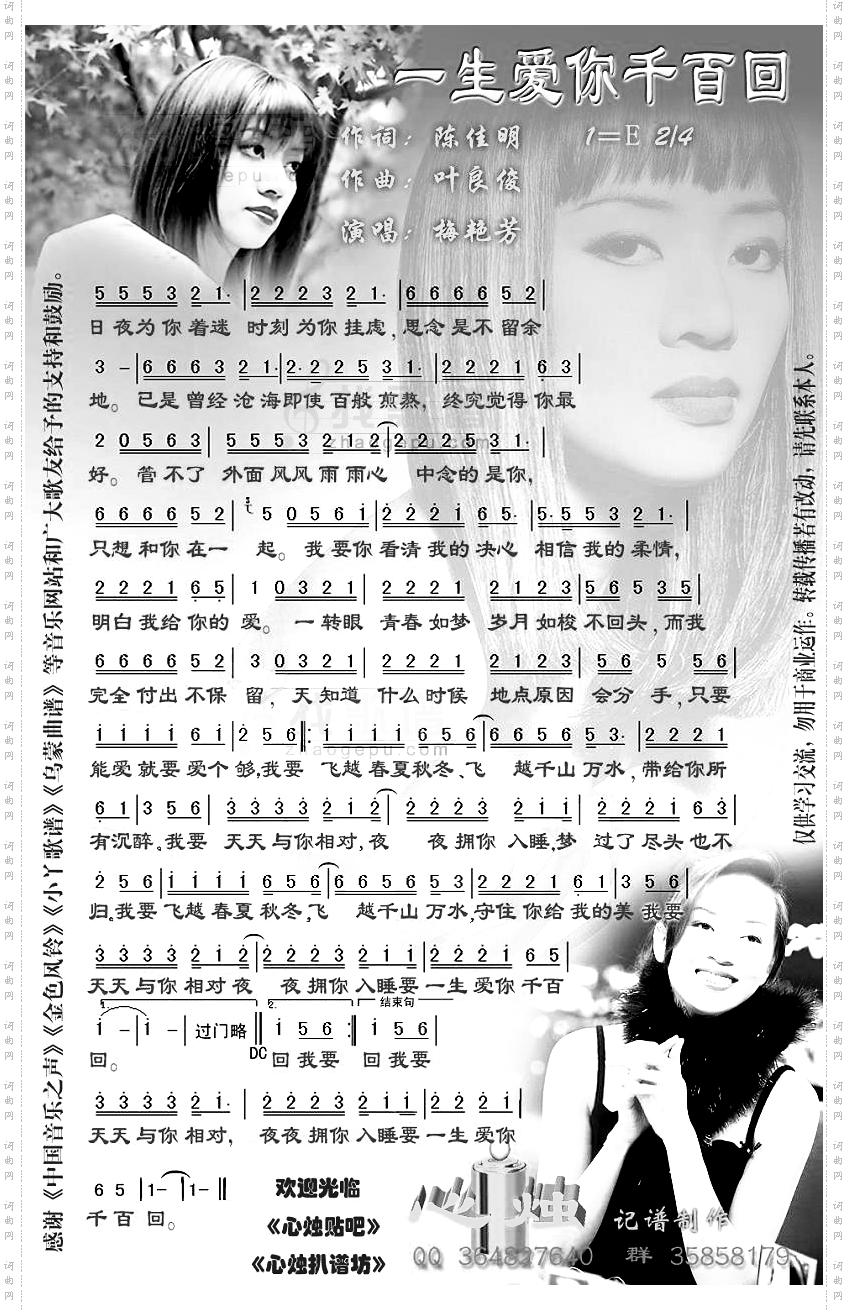 一生爱你千百回
作词：陈佳明 1=E 2/4
作曲：叶良俊
演唱：梅艳芳
5 5 5 3 2 1· | 2 2 2 3 2 1· | 6 6 6 6 5 2 |
日夜为你着迷 时刻为你挂虑,思念是不留余
3 - | 6 6 6 3 2 1· | 2· 2 2 5 3 1· | 2 2 2 1 6 3 |
地。已是曾经沧海即使百般煎熬，终究觉得你最
2 0 5 6 3 | 5 5 5 3 2 1 2 | 2 2 2 5 3 1· |
好。菅不了 外面风风雨雨心 中念的是你，
6 6 6 6 5 2 | 5 0 5 6 i | 2 2 2 i 6 5· | 5· 5 5 3 2 1· |
只想和你在一 起。我要你看清我的决心 相信我的柔情，
2 2 2 1 6 5 | 1 0 3 2 1 | 2 2 2 1 2 1 2 3 | 5 6 5 3 5 |
明白我给你的爱。一转眼 青春如梦 岁月如梭不回头,而我
6 6 6 6 5 2 | 3 0 3 2 1 | 2 2 2 1 2 1 2 3 | 5 6 5 5 6 |
完全付出不保留，天知道 什么时候 地点原因 会分手,只要
i i i i 6 i | 2 5 6 ‖: i i i i 6 5 6 | 6 6 5 6 5 3· | 2 2 2 1
能爱就要爱个够,我要 飞越春夏秋冬、飞 越千山万水,带给你所
6 1 | 3 5 6 | 3 3 3 3 2 i 2 | 2 2 2 3 2 i i | 2 2 2 i 6 3 |
有沉醉。我要 天天与你相对,夜 夜拥你入睡,梦 过了尽头也不
2 5 6 | i i i i 6 5 6 | 6 6 5 6 5 3 | 2 2 2 1 6 1 | 3 5 6 |
归。我要飞越春夏秋冬,飞 越千山万水,守住你给我的美 我要
3 3 3 3 2 i 2 | 2 2 2 3 2 i i | 2 2 2 i 6 5 |
天天与你相对夜 夜拥你入睡要一生爱你千百
1. 2. 结束句
i - | i - | 过门略 ‖ i 5 6 :‖ i 5 6 |
回。 DC 回我要 回我要
3 3 3 3 2 i· | 2 2 2 3 2 i i | 2 2 2 i |
天天与你相对， 夜夜拥你入睡要一生爱你
6 5 | 1- | 1- ‖
千百回。
欢迎光临
《心烛贴吧》
《心烛扒谱坊》
心烛 记谱制作
QQ 364827640 群 35858179
感谢《中国音乐之声》《金色风铃》《小丫歌谱》《乌蒙曲谱》等音乐网站和广大歌友给予的支持和鼓励。
仅供学习交流，勿用于商业运作。转载传播若有改动，请先联系本人。
zhaogepu.com
词曲网